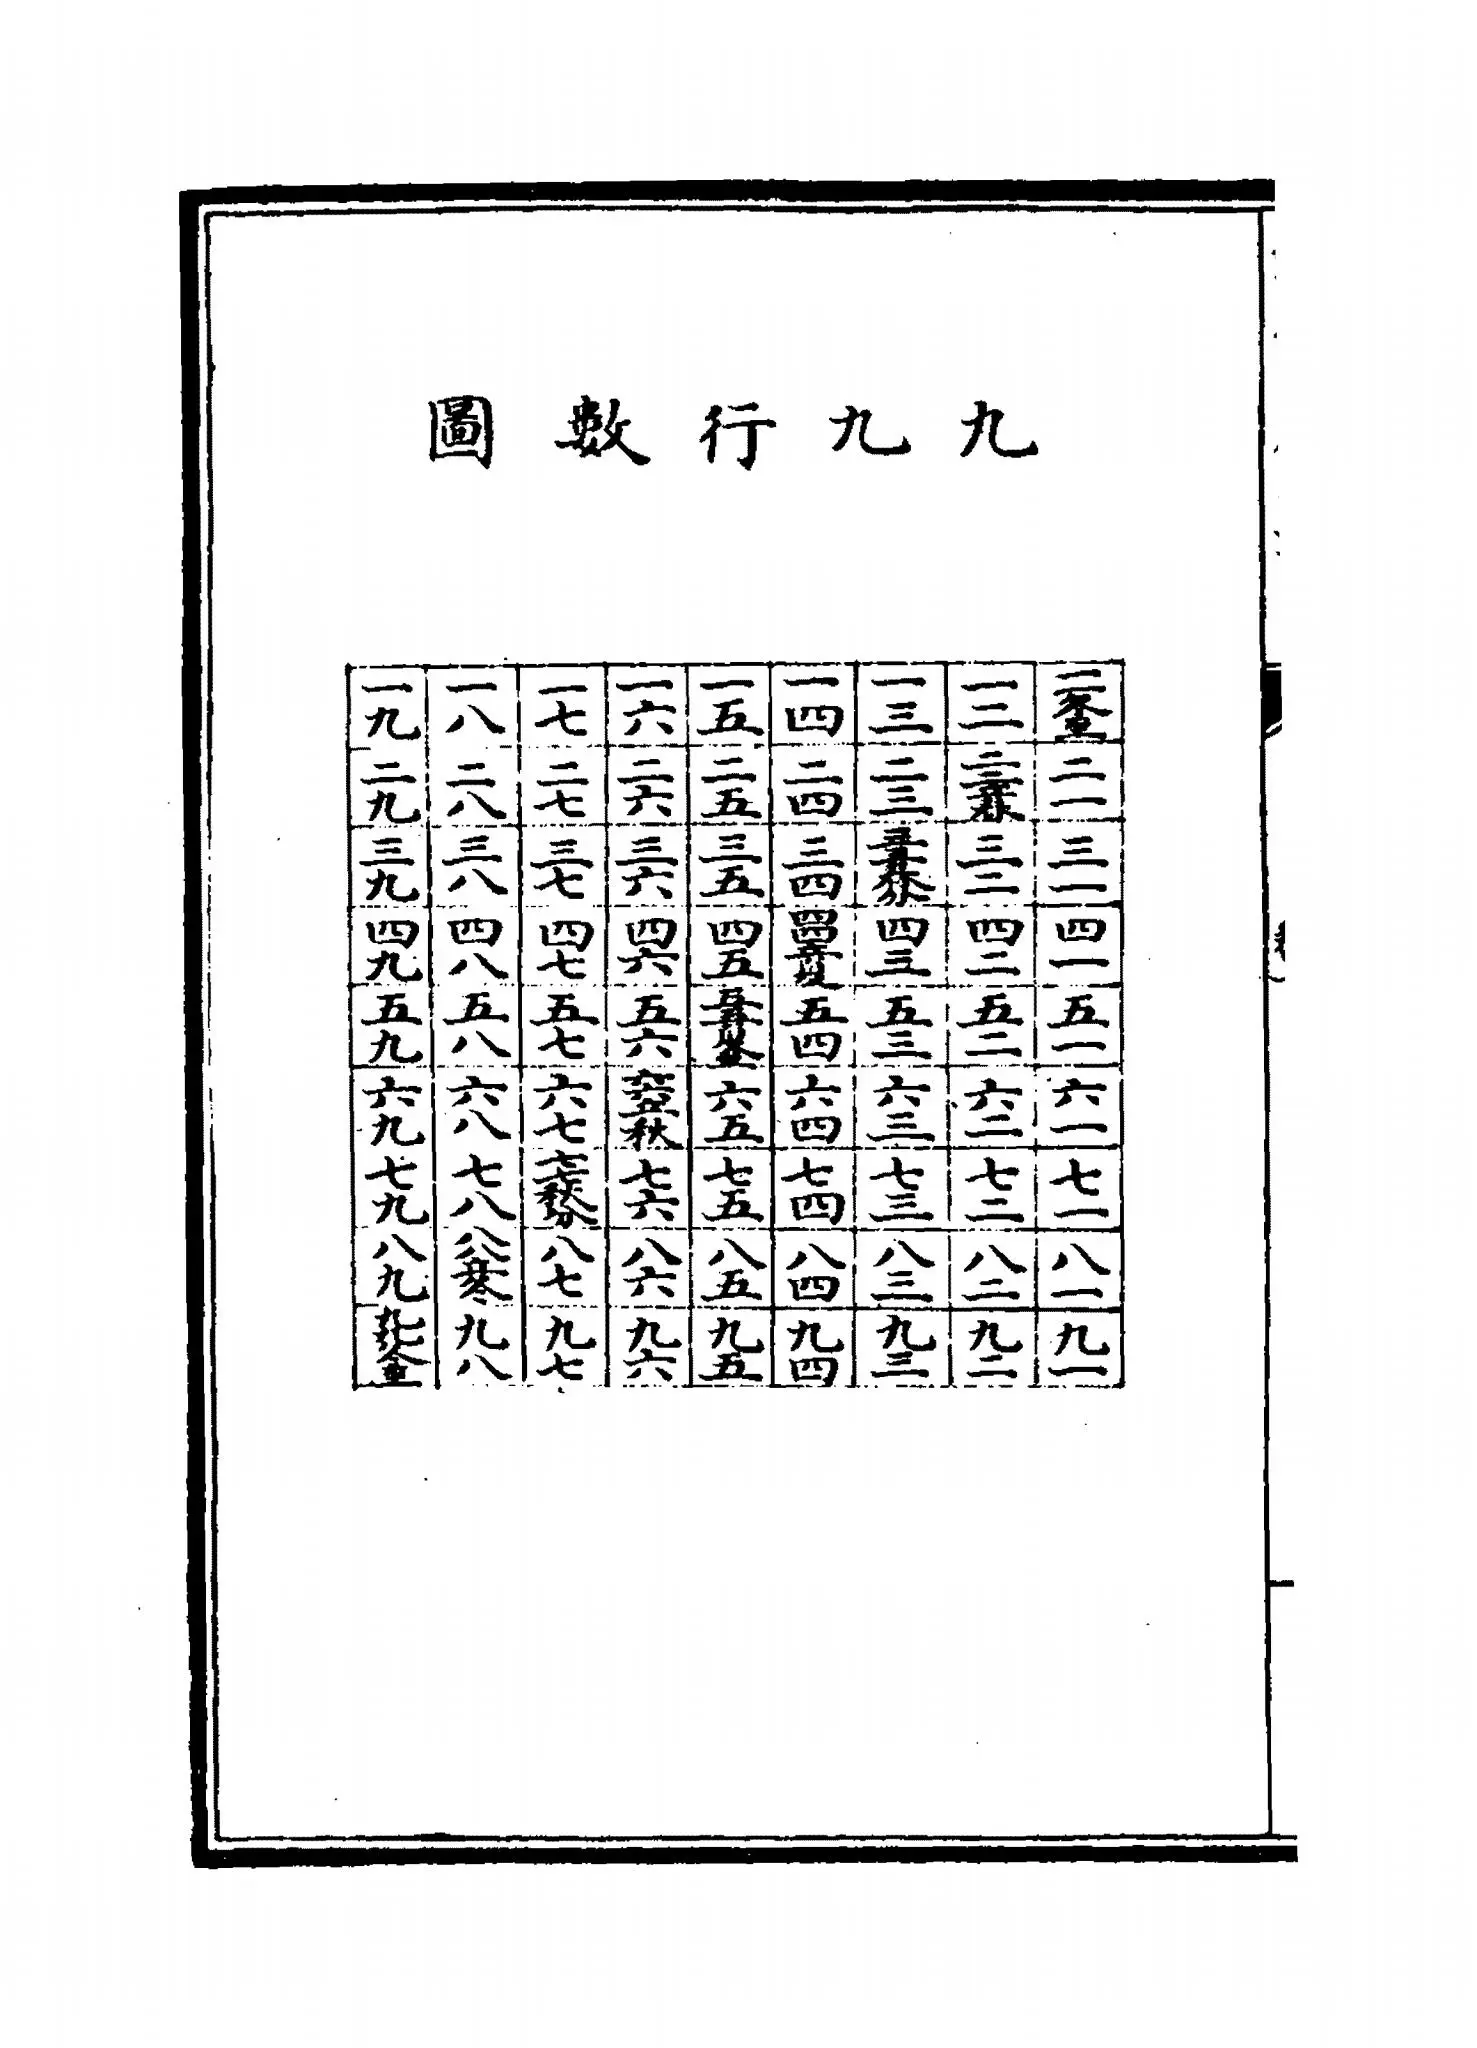 九九行數圖
一一冬至 一二 一三 一四 一五 一六 一七 一八 一九
二一 二二立春 二三 二四 二五 二六 二七 二八 二九
三一 三二 三三春分 三四 三五 三六 三七 三八 三九
四一 四二 四三 四四立夏 四五 四六 四七 四八 四九
五一 五二 五三 五四 五五夏至 五六 五七 五八 五九
六一 六二 六三 六四 六五 六六立秋 六七 六八 六九
七一 七二 七三 七四 七五 七六 七七秋分 七八 七九
八一 八二 八三 八四 八五 八六 八七 八八立冬 八九
九一 九二 九三 九四 九五 九六 九七 九八 九九冬至